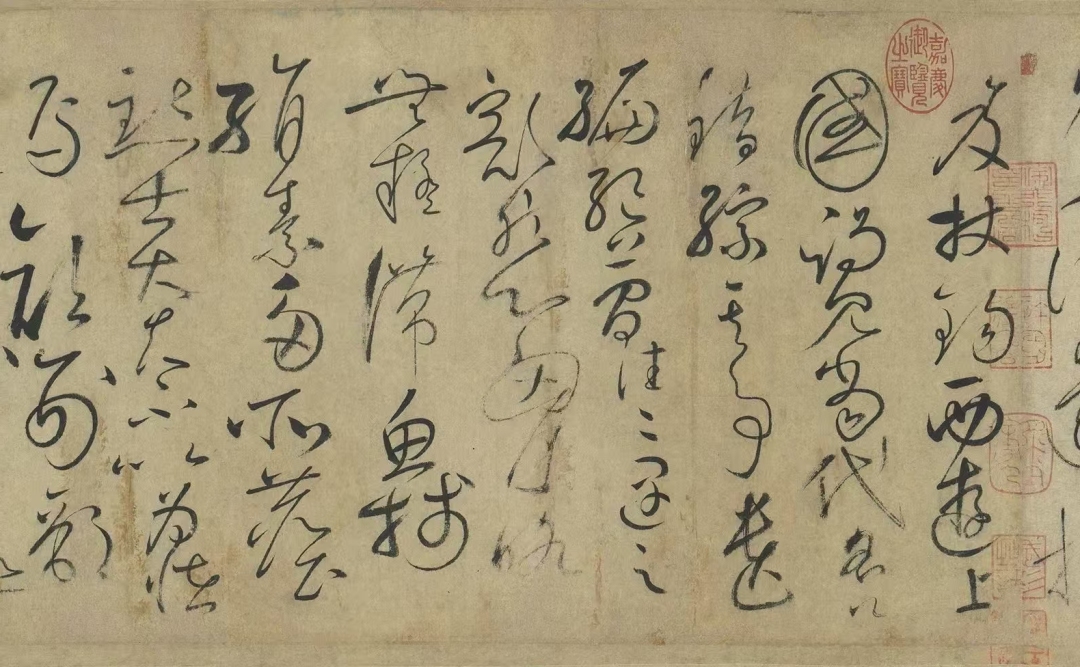 嘉慶御覽之寶
笈杖錫西遊上
國謁見當代名公
錯綜其事遺
編絕簡往往遇之
豁然心胸略
無疑滯魚牋
絹素多所塵
點士大夫不以為怪
焉顏刑部